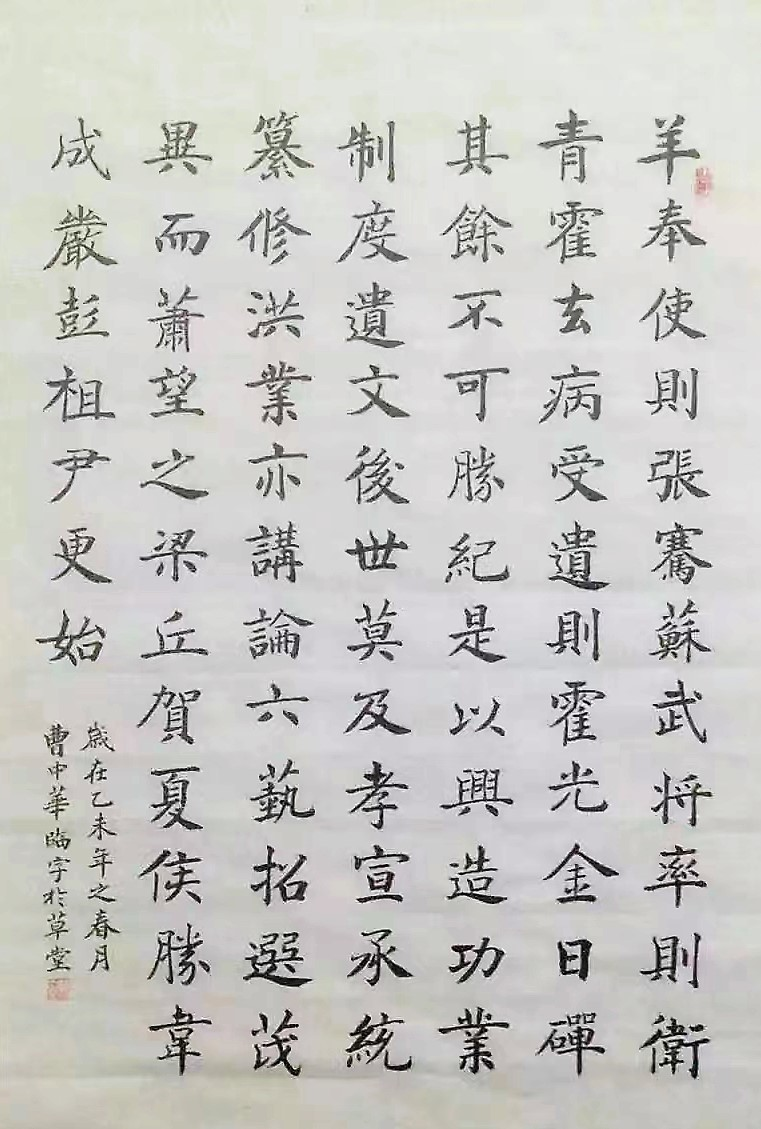 羊奉使則張騫蘇武将率則衛
青霍玄病受遺則霍光金日磾
其餘不可勝紀是以興造功業
制度遺文後世莫及孝宣承統
纂修洪業亦講論六藝招選茂
異而蕭望之梁丘賀夏侯勝韋
成嚴彭祖尹更始
歲在乙未年之春月
曹中華臨字於草堂